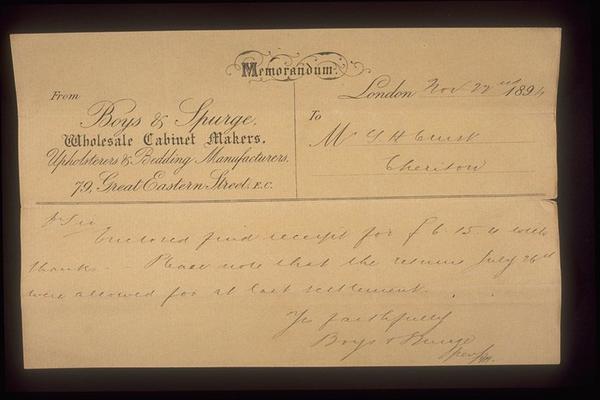 Memorandum.
From
Boys & Spurge,
Wholesale Cabinet Makers,
Upholsterers & Bedding Manufacturers.
79, Great Eastern Street, E.C.
London Nov 22nd 1894
To
Mr G H
Cheriton
Dr Sir
Enclosed find receipt for £6.15.4 with
thanks. - Please note that the returns July 26th
were allowed for at last settlement.
Yrs faithfully
Boys & Spurge